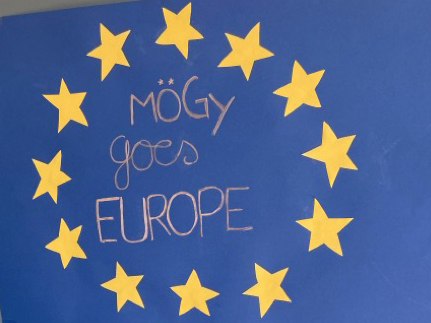 MÖGy
goes
EUROPE